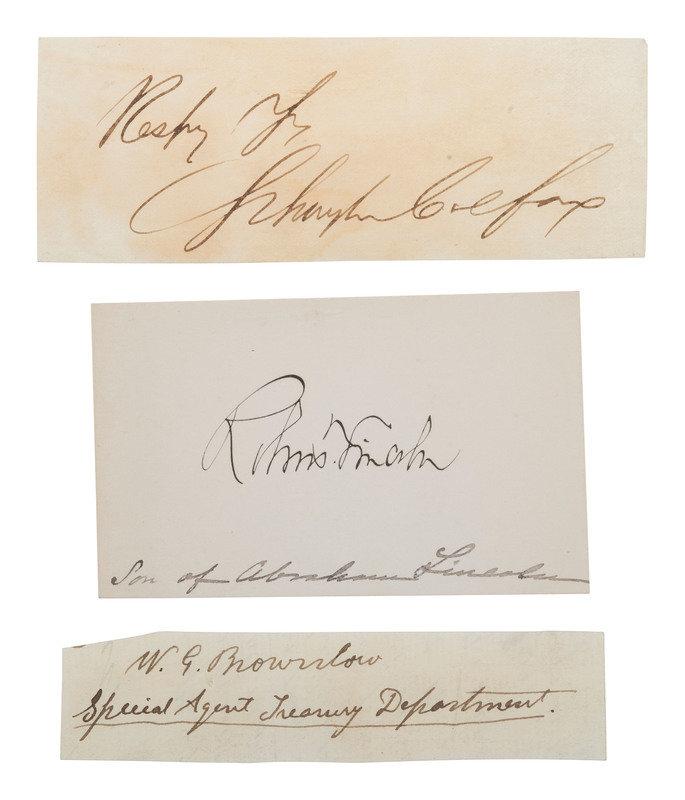 Respy Yrs
Schuyler Colfax
Robert T. Lincoln
Son of Abraham Lincoln
W. G. Brownlow
Special Agent Treasury Department.